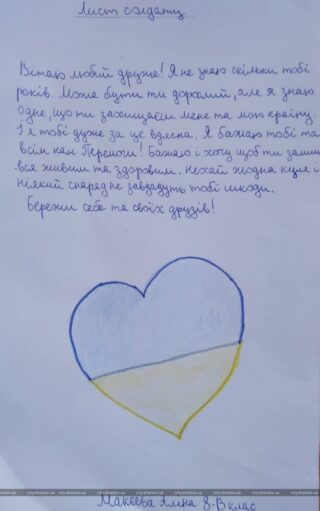 Лист солдату
Вітаю любий друже! Я не знаю скільки тобі
років. Може бути ти дорослий, але я знаю
одне, що ти захищаєш мене та мою країну.
І я тобі дуже за це вдячна. Я бажаю тобі та
всім нам Перемоги! Бажаю і хочу щоб ти залиши
вся живим та здоровим. Нехай жодна куля і
ніякий снаряд не завдадуть тобі шкоди.
Бережи себе та своїх друзів!
Макеєва Аліна 8-В клас